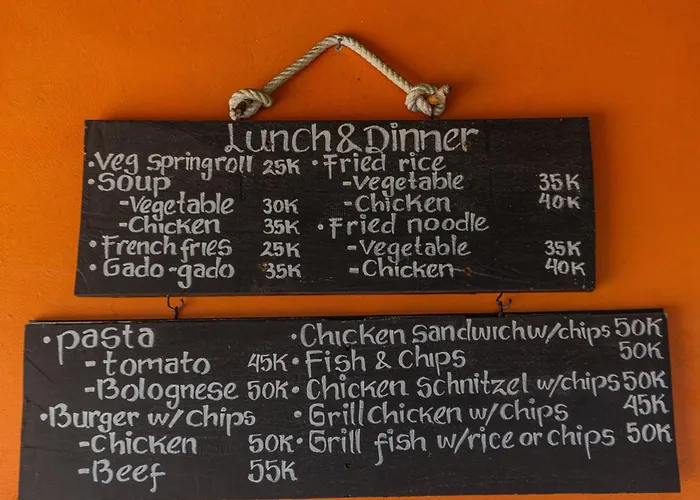 Lunch & Dinner
•Veg Springroll 25K
•Soup
-Vegetable 30K
-Chicken 35K
•French fries 25K
•Gado-gado 35K
•Fried rice
-Vegetable 35K
-Chicken 40K
•Fried noodle
-Vegetable 35K
-Chicken 40K
•pasta
-tomato 45K
-Bolognese 50K
•Burger w/chips
-Chicken 50K
-Beef 55K
•Chicken Sandwich w/chips 50K
•Fish & Chips 50K
•Chicken Schnitzel w/chips 50K
•Grill Chicken w/chips 45K
•Grill fish w/rice or chips 50K